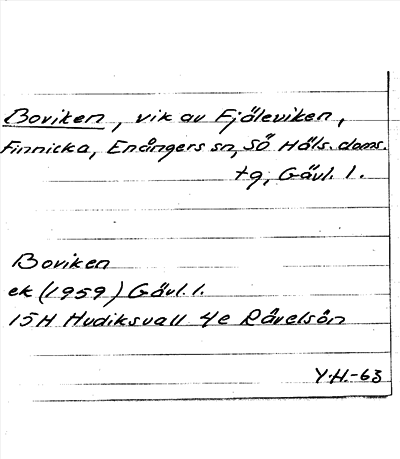 Boviken, vik av Fjäleviken,
Finnicka, Enångers sn, SÖ Häls. doms.
tg, Gävl. l.
Boviken
ek (1959) Gävl. l.
15H Hudiksvall 4e Råvelsön
Y.H.-63